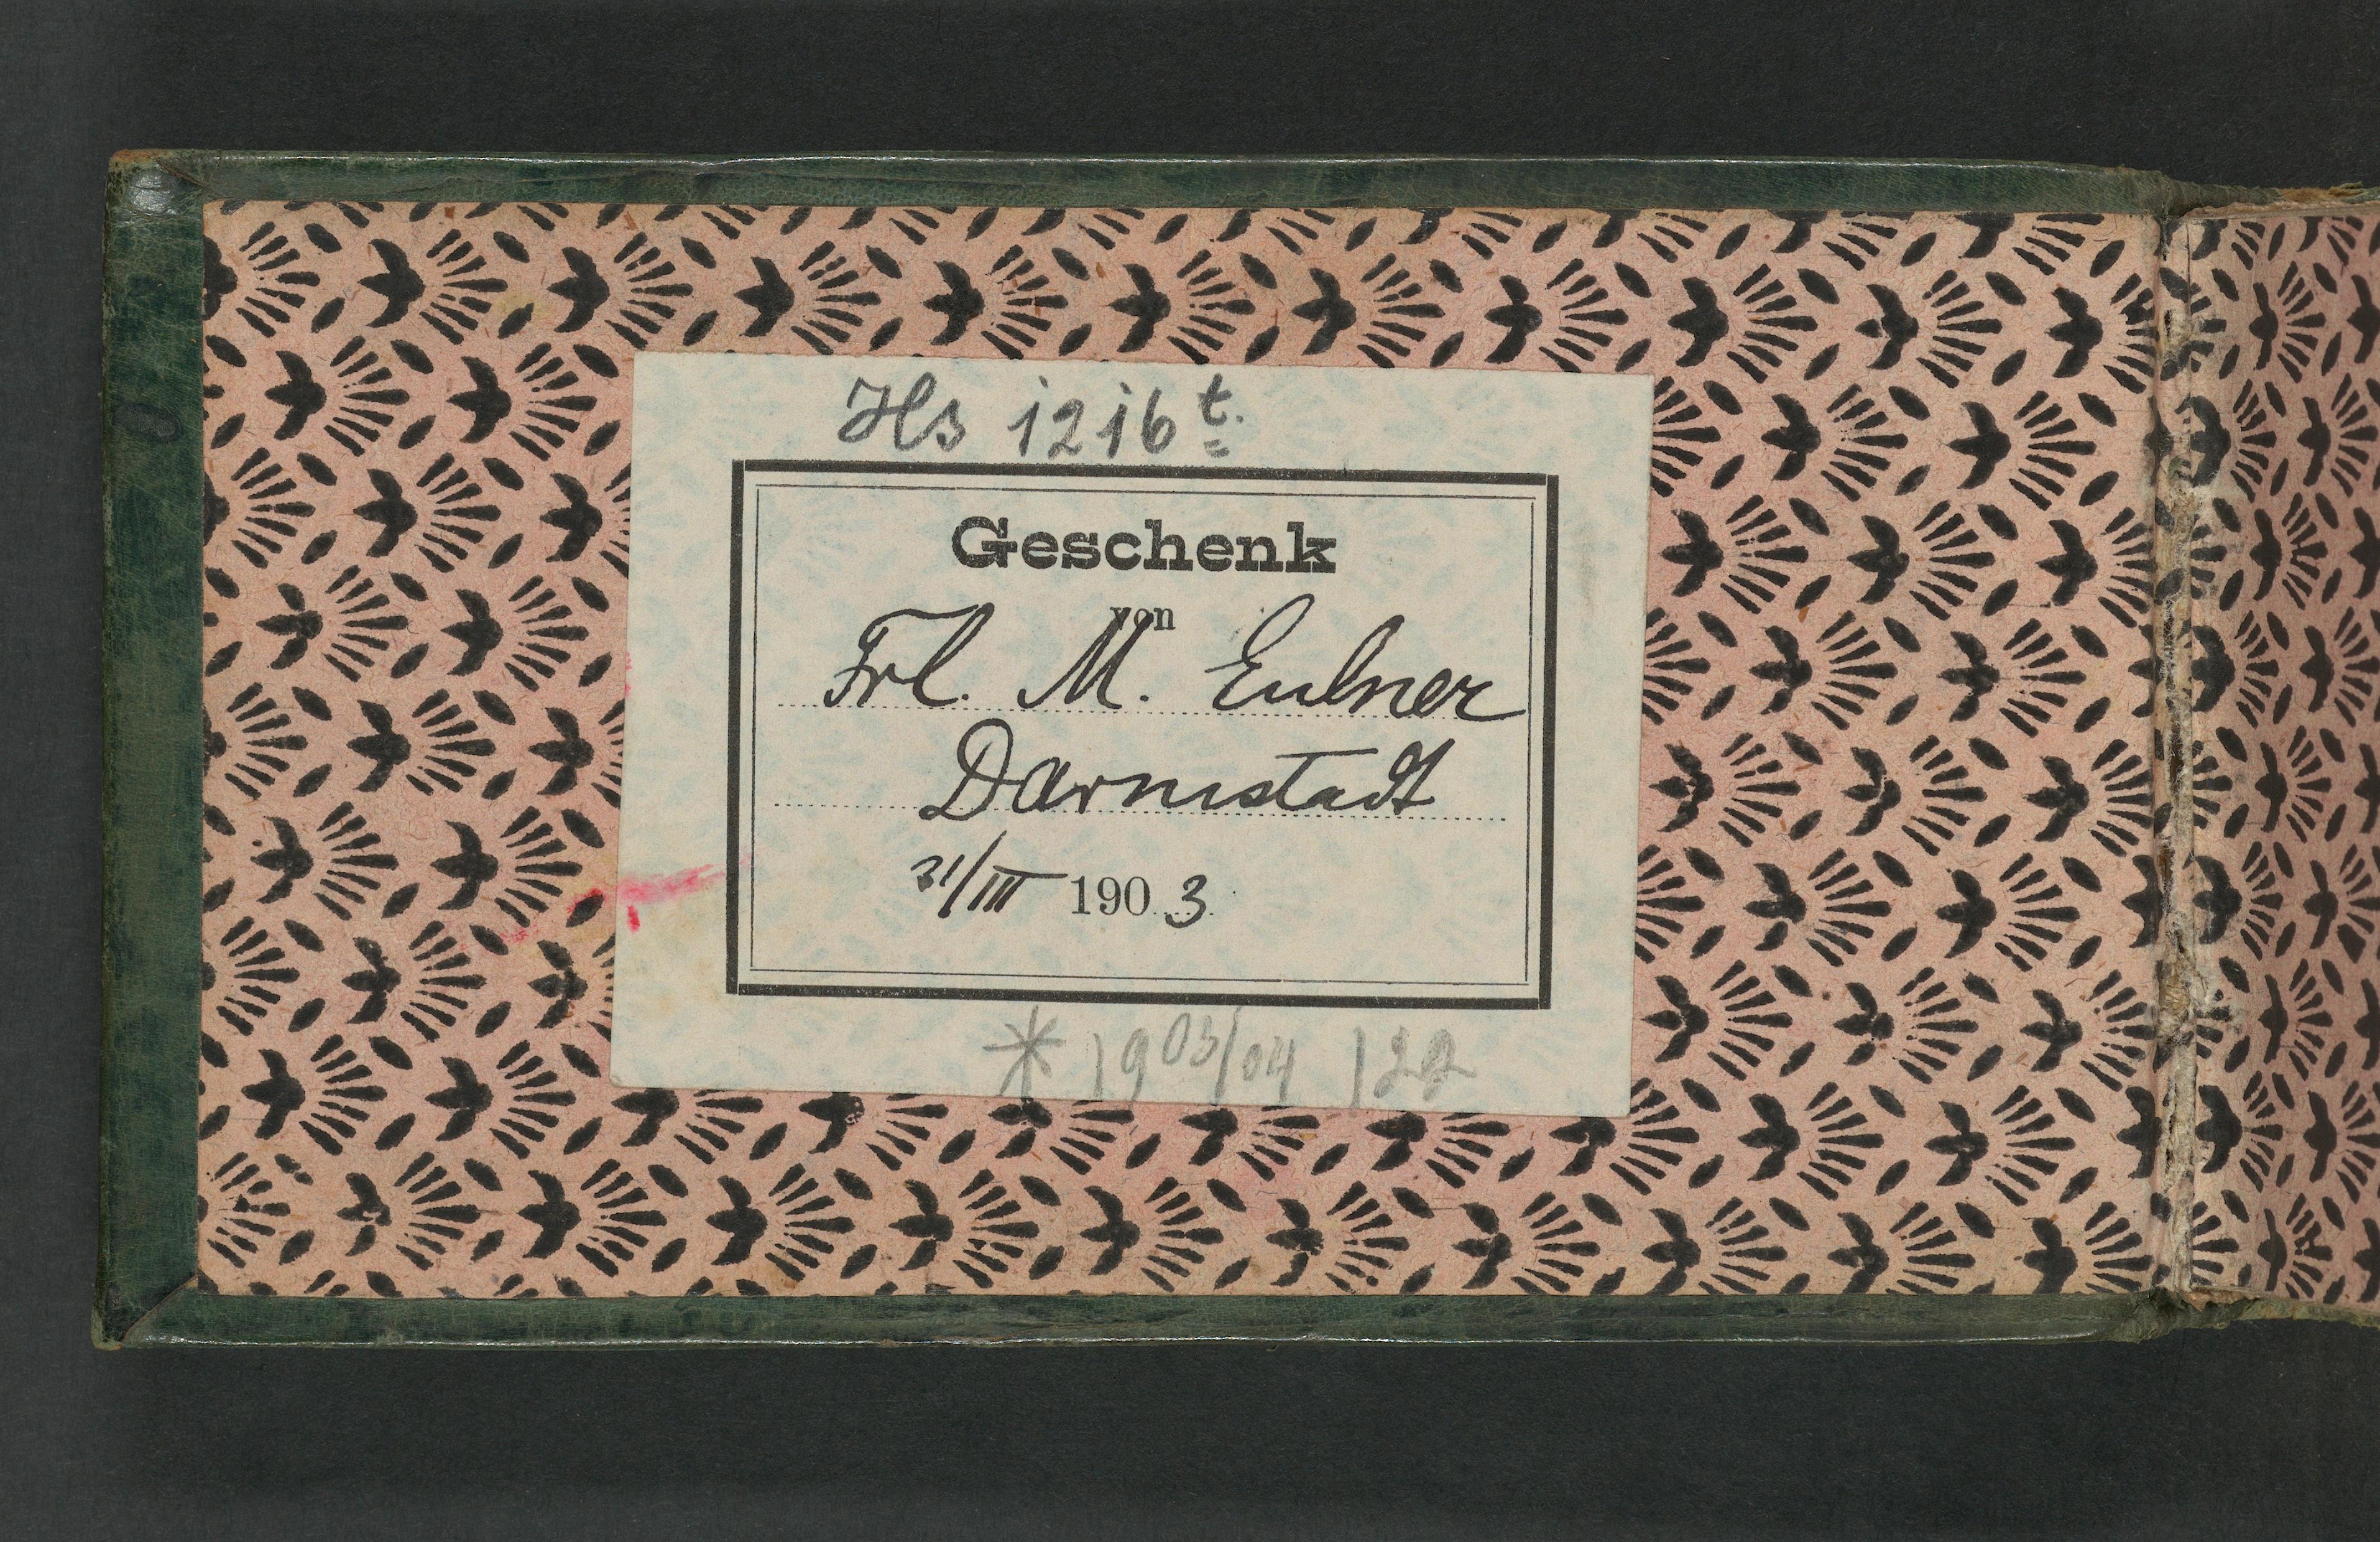 Hs 1216 t.
Geschenk
von
Frl. M. Eulner
Darmstadt
31/III 1903
* 1903/04 122